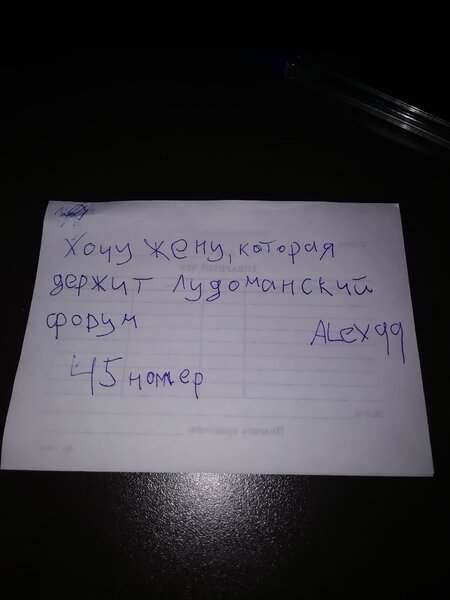 Хочу жену, которая
держит лудоманский
форум
ALex99
45 номер